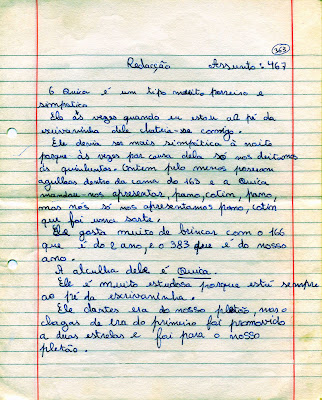 363
Redacção Assunto: 467
O Quica é um tipo muito porreiro e
simpático
Ele às vezes quando eu estou ao pé da
escrivaninha dele chateia-se comigo.
Ele devia ser mais simpático à noite
porque às vezes por causa dele só nos deitamos
às quinhentas. Ontem pelo menos puseram
agulhas dentro da cama do 163 e o Quica
mandou-nos apresentar, pano, cotin, pano,
mas nós só nos apresentamos pano, cotin
que foi uma sorte.
Ele gosta muito de brincar com o 166
que é do 2 ano, e o 383 que é do nosso
ano.
A alculha dele é Quica.
Ele é muito estudoso porque está sempre
ao pé da escrivaninha.
Ele dantes era do nosso pletão, mas o
chagas de era do primeiro foi promovido
a duas estrelas e foi para o nosso
pletão.